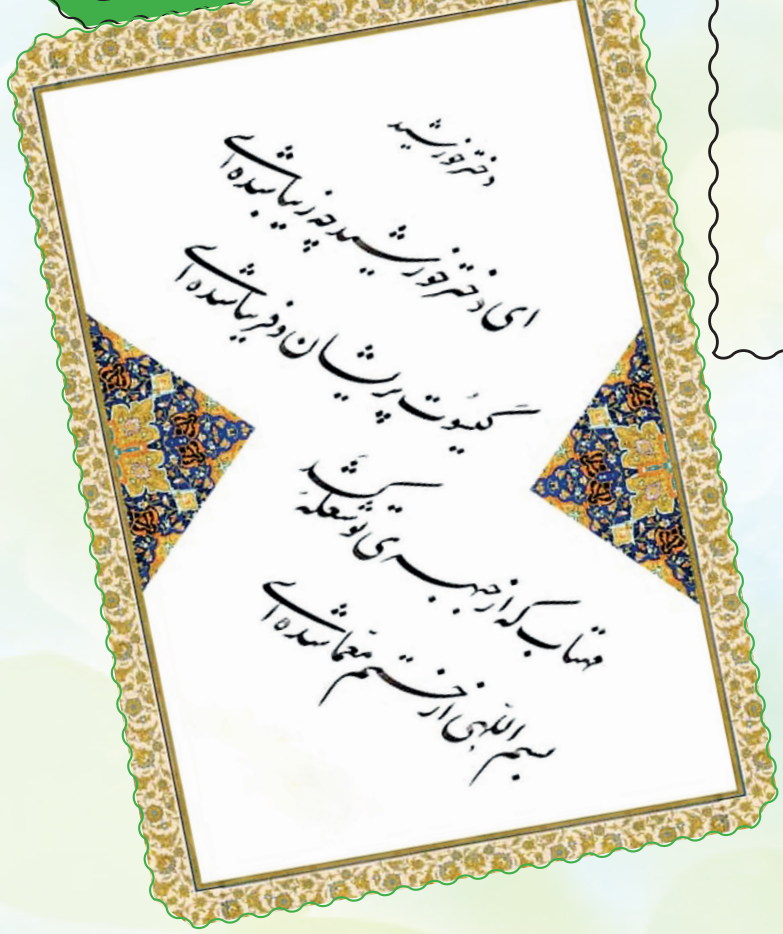 دختر خورشید
ای دختر خورشید چه زیبا شده‌ای
گیسُوت پریشان و فریبا شده‌ای
مهتاب که از جبهه‌ی تو شعله کشد
بسم اللهی از ختم معما شده‌ای